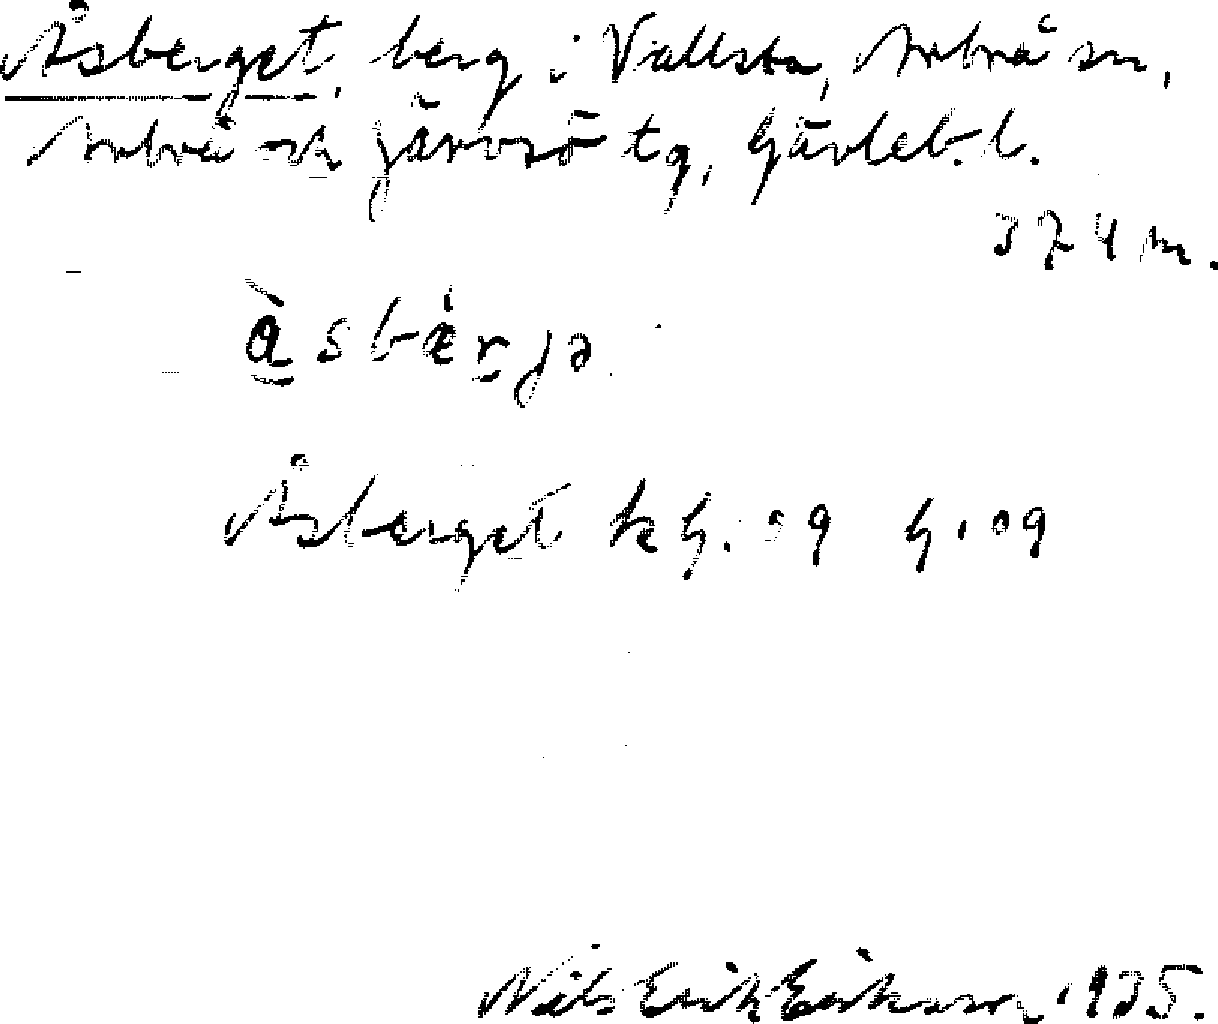 Åsberget, berg i Vallsta, Arbrå sn,
Arbrå och Järvsö tg, Gävleb. l.
374 m.
å̀sbæ̀rjə
Åsberget kg. 09 G. 09
Nils Erik Eriksson 1935.